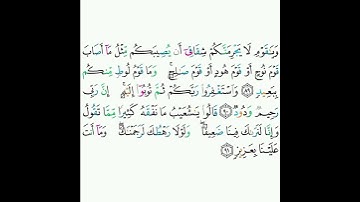 وَيَـٰقَوْمِ لَا يَجْرِمَنَّكُمْ شِقَاقِىٓ أَن يُصِيبَكُم مِّثْلُ مَآ أَصَابَ
قَوْمَ نُوحٍ أَوْ قَوْمَ هُودٍ أَوْ قَوْمَ صَـٰلِحٍ ۚ وَمَا قَوْمُ لُوطٍ مِّنكُم
بِبَعِيدٍ ٨٩ وَٱسْتَغْفِرُوا۟ رَبَّكُمْ ثُمَّ تُوبُوٓا۟ إِلَيْهِ ۚ إِنَّ رَبِّى
رَحِيمٌ وَدُودٌ ٩٠ قَالُوا۟ يَـٰشُعَيْبُ مَا نَفْقَهُ كَثِيرًا مِّمَّا تَقُولُ
وَإِنَّا لَنَرَىٰكَ فِينَا ضَعِيفًا ۖ وَلَوْلَا رَهْطُكَ لَرَجَمْنَـٰكَ ۖ وَمَآ أَنتَ
عَلَيْنَا بِعَزِيزٍ ٩١